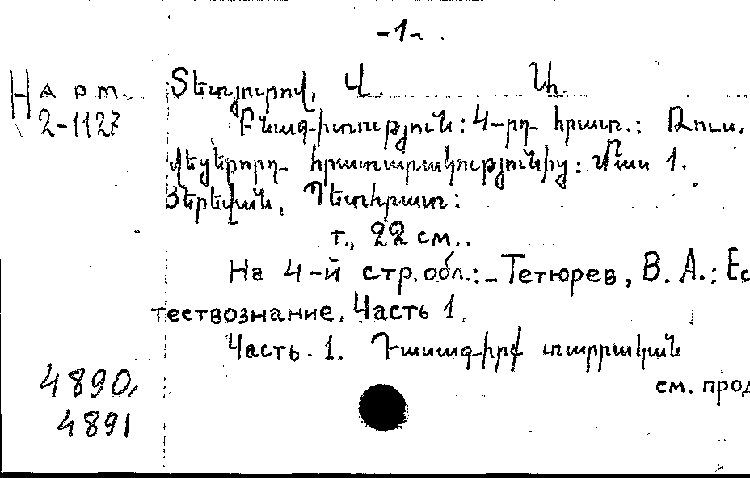 -1-.
Н а р т. Տետյուրով, Վ. Ա.
2-1127 Բնագիտություն: 4-րդ հրատ.: Ռուս.
վեցերորդ հրատարակությունից: Մաս 1.
Յերևան, Պետհրատ:
т., 22 см..
На 4-й стр. обл.: - Тетюрев, В. А.: Ес
тествознание. Часть 1.
Часть 1. Դասագիրք տարրական
4890, см. прод
4891